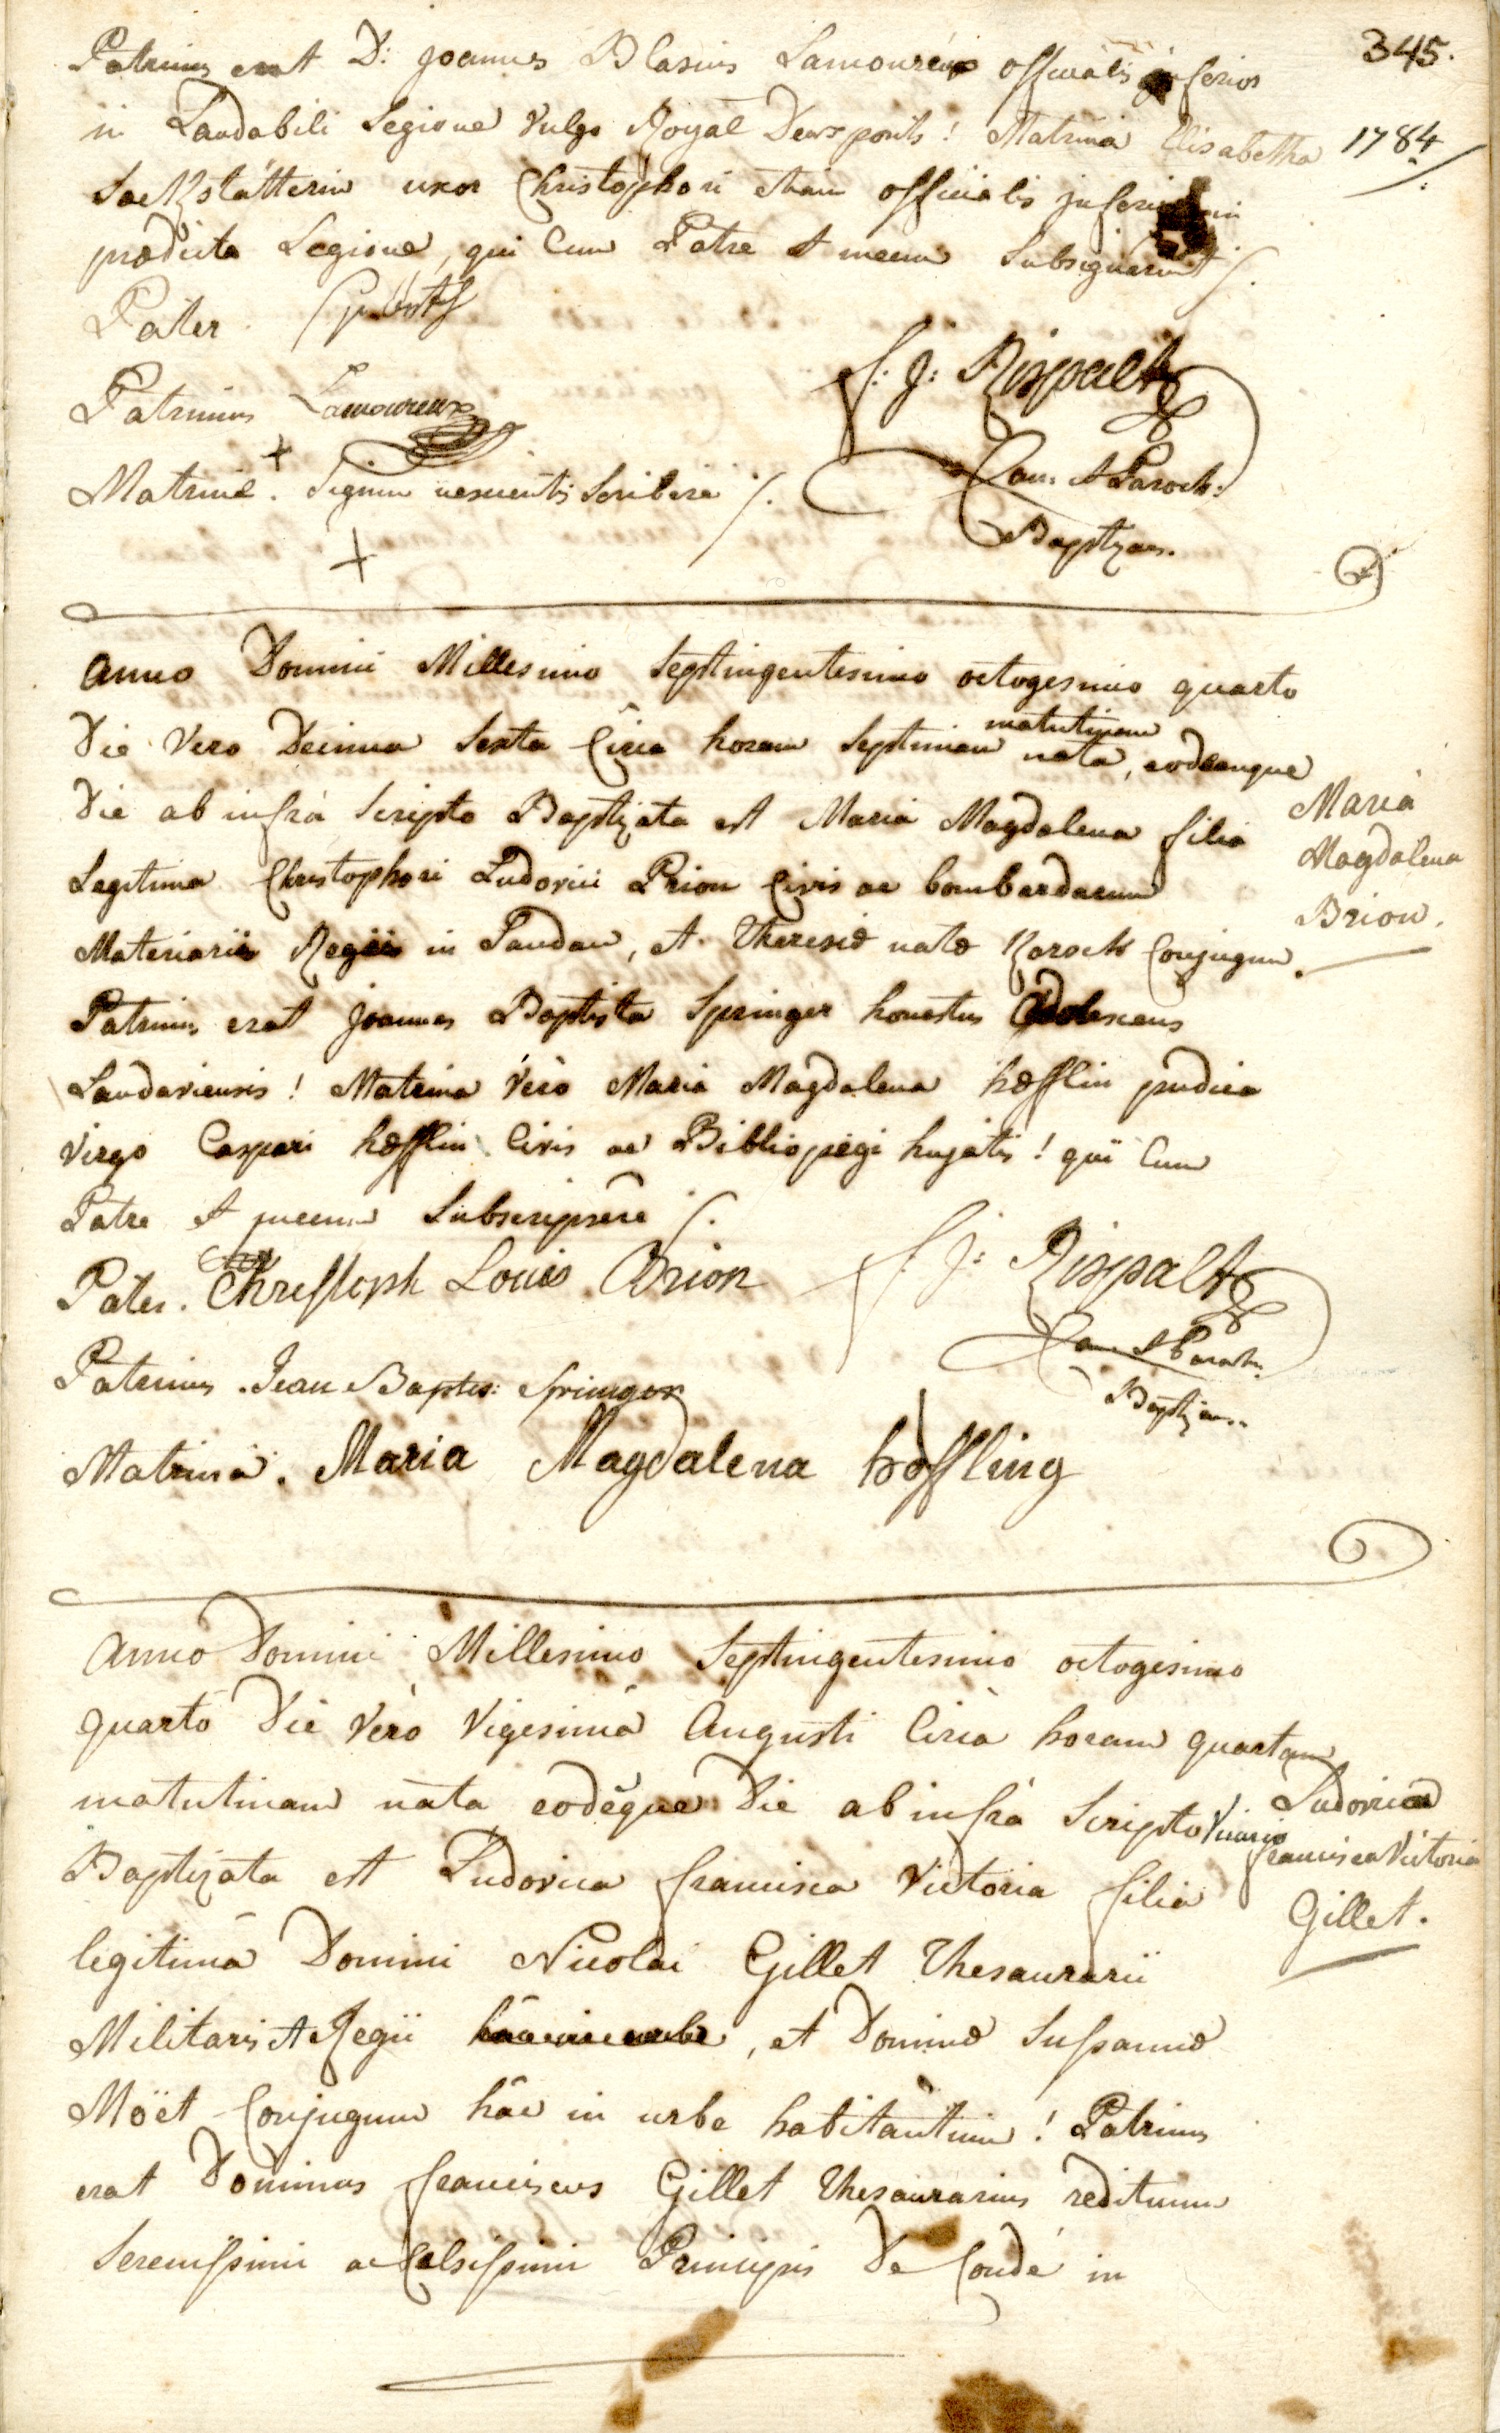 345.
1784
Patrinus erat D: Joannes Blasius Lamoureux officialis inferior
in Laudabili Legione vulgo Royal Deuxponts! Matrina Elisabetha
uxor Christophori etiam officialis inferioris in
prædicta Legione, qui cum Patre et mecum subsignarunt /.
Pater
Patrinus Lamoureux
Matrinæ. Signum nescientis scribere /.
+
+
f: J: Rispalt
Can: et Paroch:
Baptizans.
Anno Domini Millesimo Septingentesimo octogesimo quarto
Die vero Decima Sexta Circa horam Septimam matutinam nata, eodemque
Die ab infrà Scripto Baptizata est Maria Magdalena filia
Legitima Christophori Ludovici Prion Civis ac bombardarum
Materiarii Regii in Landau, et Theresiæ natæ Karoch Conjugum.
Patrinus erat Joannes Baptista Springer honestus Adolescens
Landaviensis! Matrina verò Maria Magdalena hæfflin pudica
virgo Caspari hæfflin Civis ac Bibliopegi hujatis! qui Cum
Patre et mecum Subscripsere /.
Maria
Magdalena
Brion.
Pater. Christoph Louis Brion
Patrinus. Jean Baptis: Springer
Matrina. Maria Magdalena höffling
f: J: Rispalt
Can. et Paroch.
Baptizans.
Anno Domini Millesimo Septingentesimo octogesimo
quarto Die verò Vigesimâ Augusti Circà horam quartam
matutinam nata eodēque Die ab infrà Scripto Vicario
Baptizata est Ludovica francisca Victoria filia
legitimâ Domini Nicolai Gillet Thesaurarii
Militaris et Regii hâc in urbe, et Dominæ Sussannæ
Möet Conjugum hâc in urbe habitantium! Patrinus
erat Dominus franciscus Gillet Thesaurarius redituum
Serenissimi ac Celsissimi Principis De Condé in
Ludovica
francisca Victoria
Gillet.